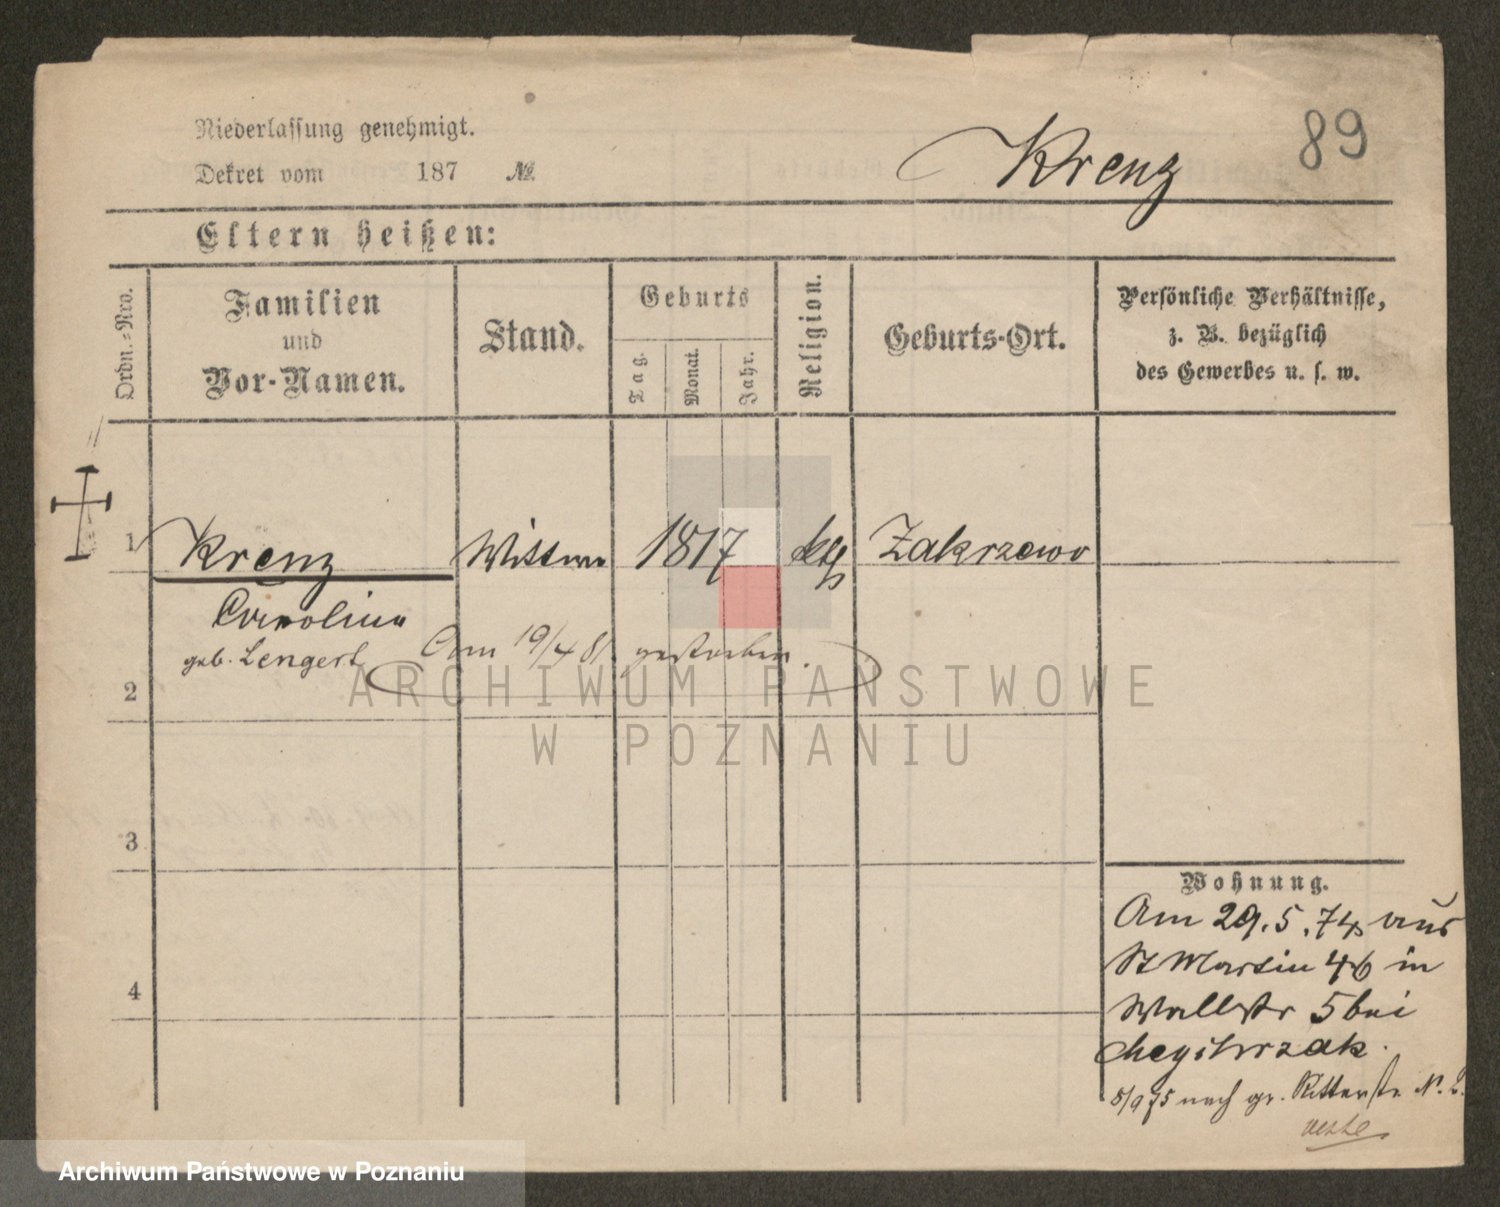 Niederlassung genehmigt.
Dekret vom 187 №.
Krenz
89
Eltern heißen:
Ordn.-Nro.
Familien
und
Vor-Namen.
Stand.
Geburts
Tag.
Monat.
Jahr.
Religion.
Geburts-Ort.
Persönliche Verhältnisse,
z. B. bezüglich
des Gewerbes u. s. w.
1 Krenz Wittwe 1817 Zakrzewo
Carolina
geb. Lengert
Am 19/4 81 gestorben.
2
3
4
Wohnung.
Am 29.5.74 aus
St Martin 46 in
Wallstr 5 bei
8/9 75 nach gr. Ritterstr N. 2.
ARCHIWUM PAŃSTWOWE
W POZNANIU
Archiwum Państwowe w Poznaniu